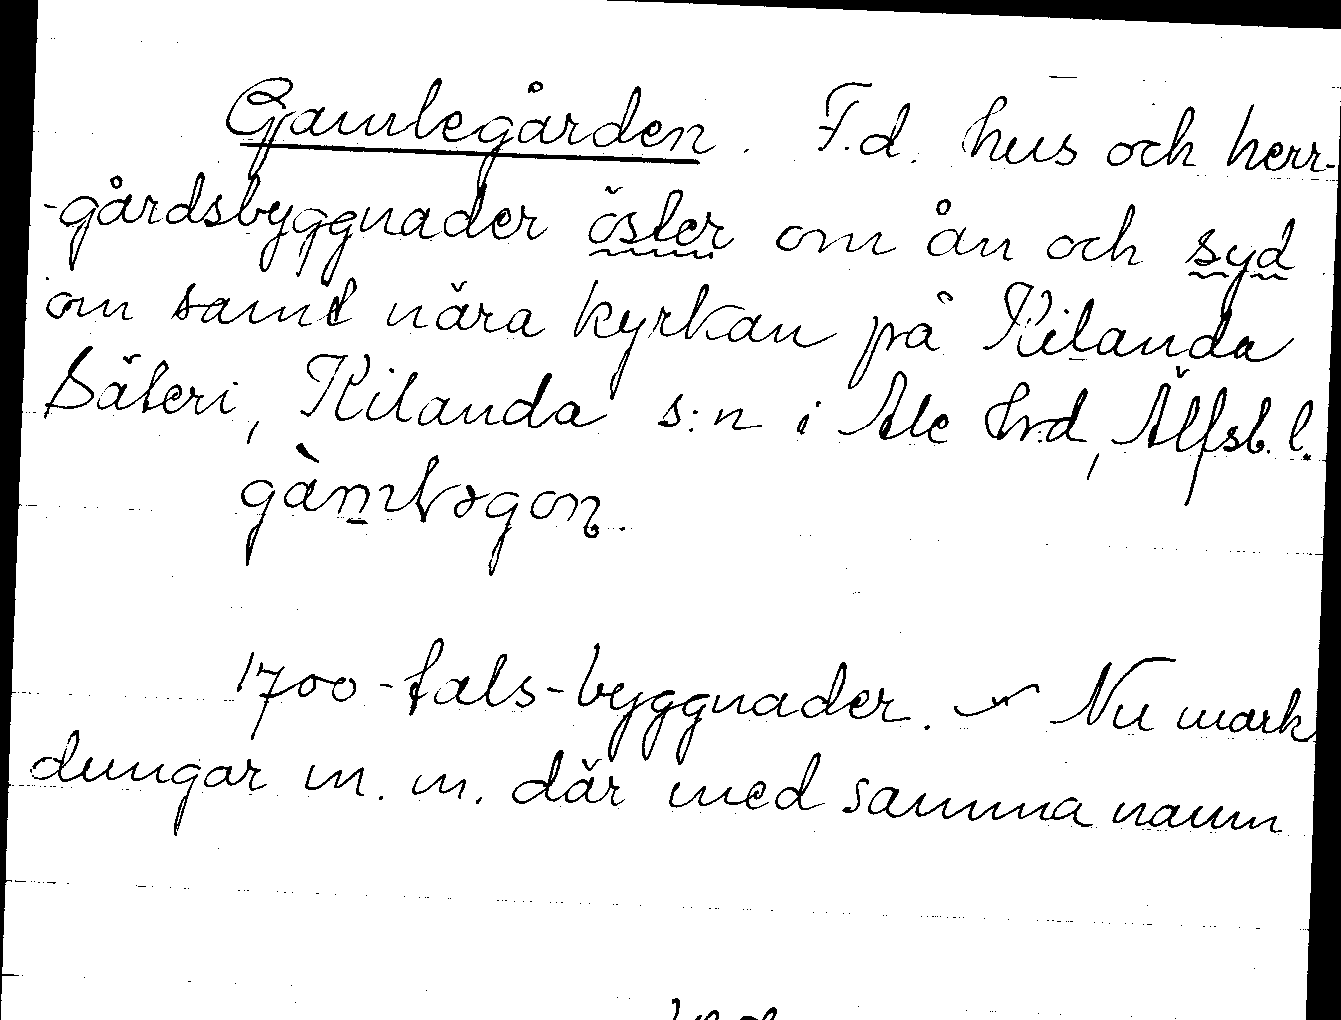 Gamlegården. F.d. hus och herr-
-gårdsbyggnader öster om ån och syd
om samt nära kyrkan på Kilanda
Säteri, Kilanda s:n i Ale hrd, Älfsb. l.
1700-tals-byggnader. Nu mark
dungar m. m. där med samma namn